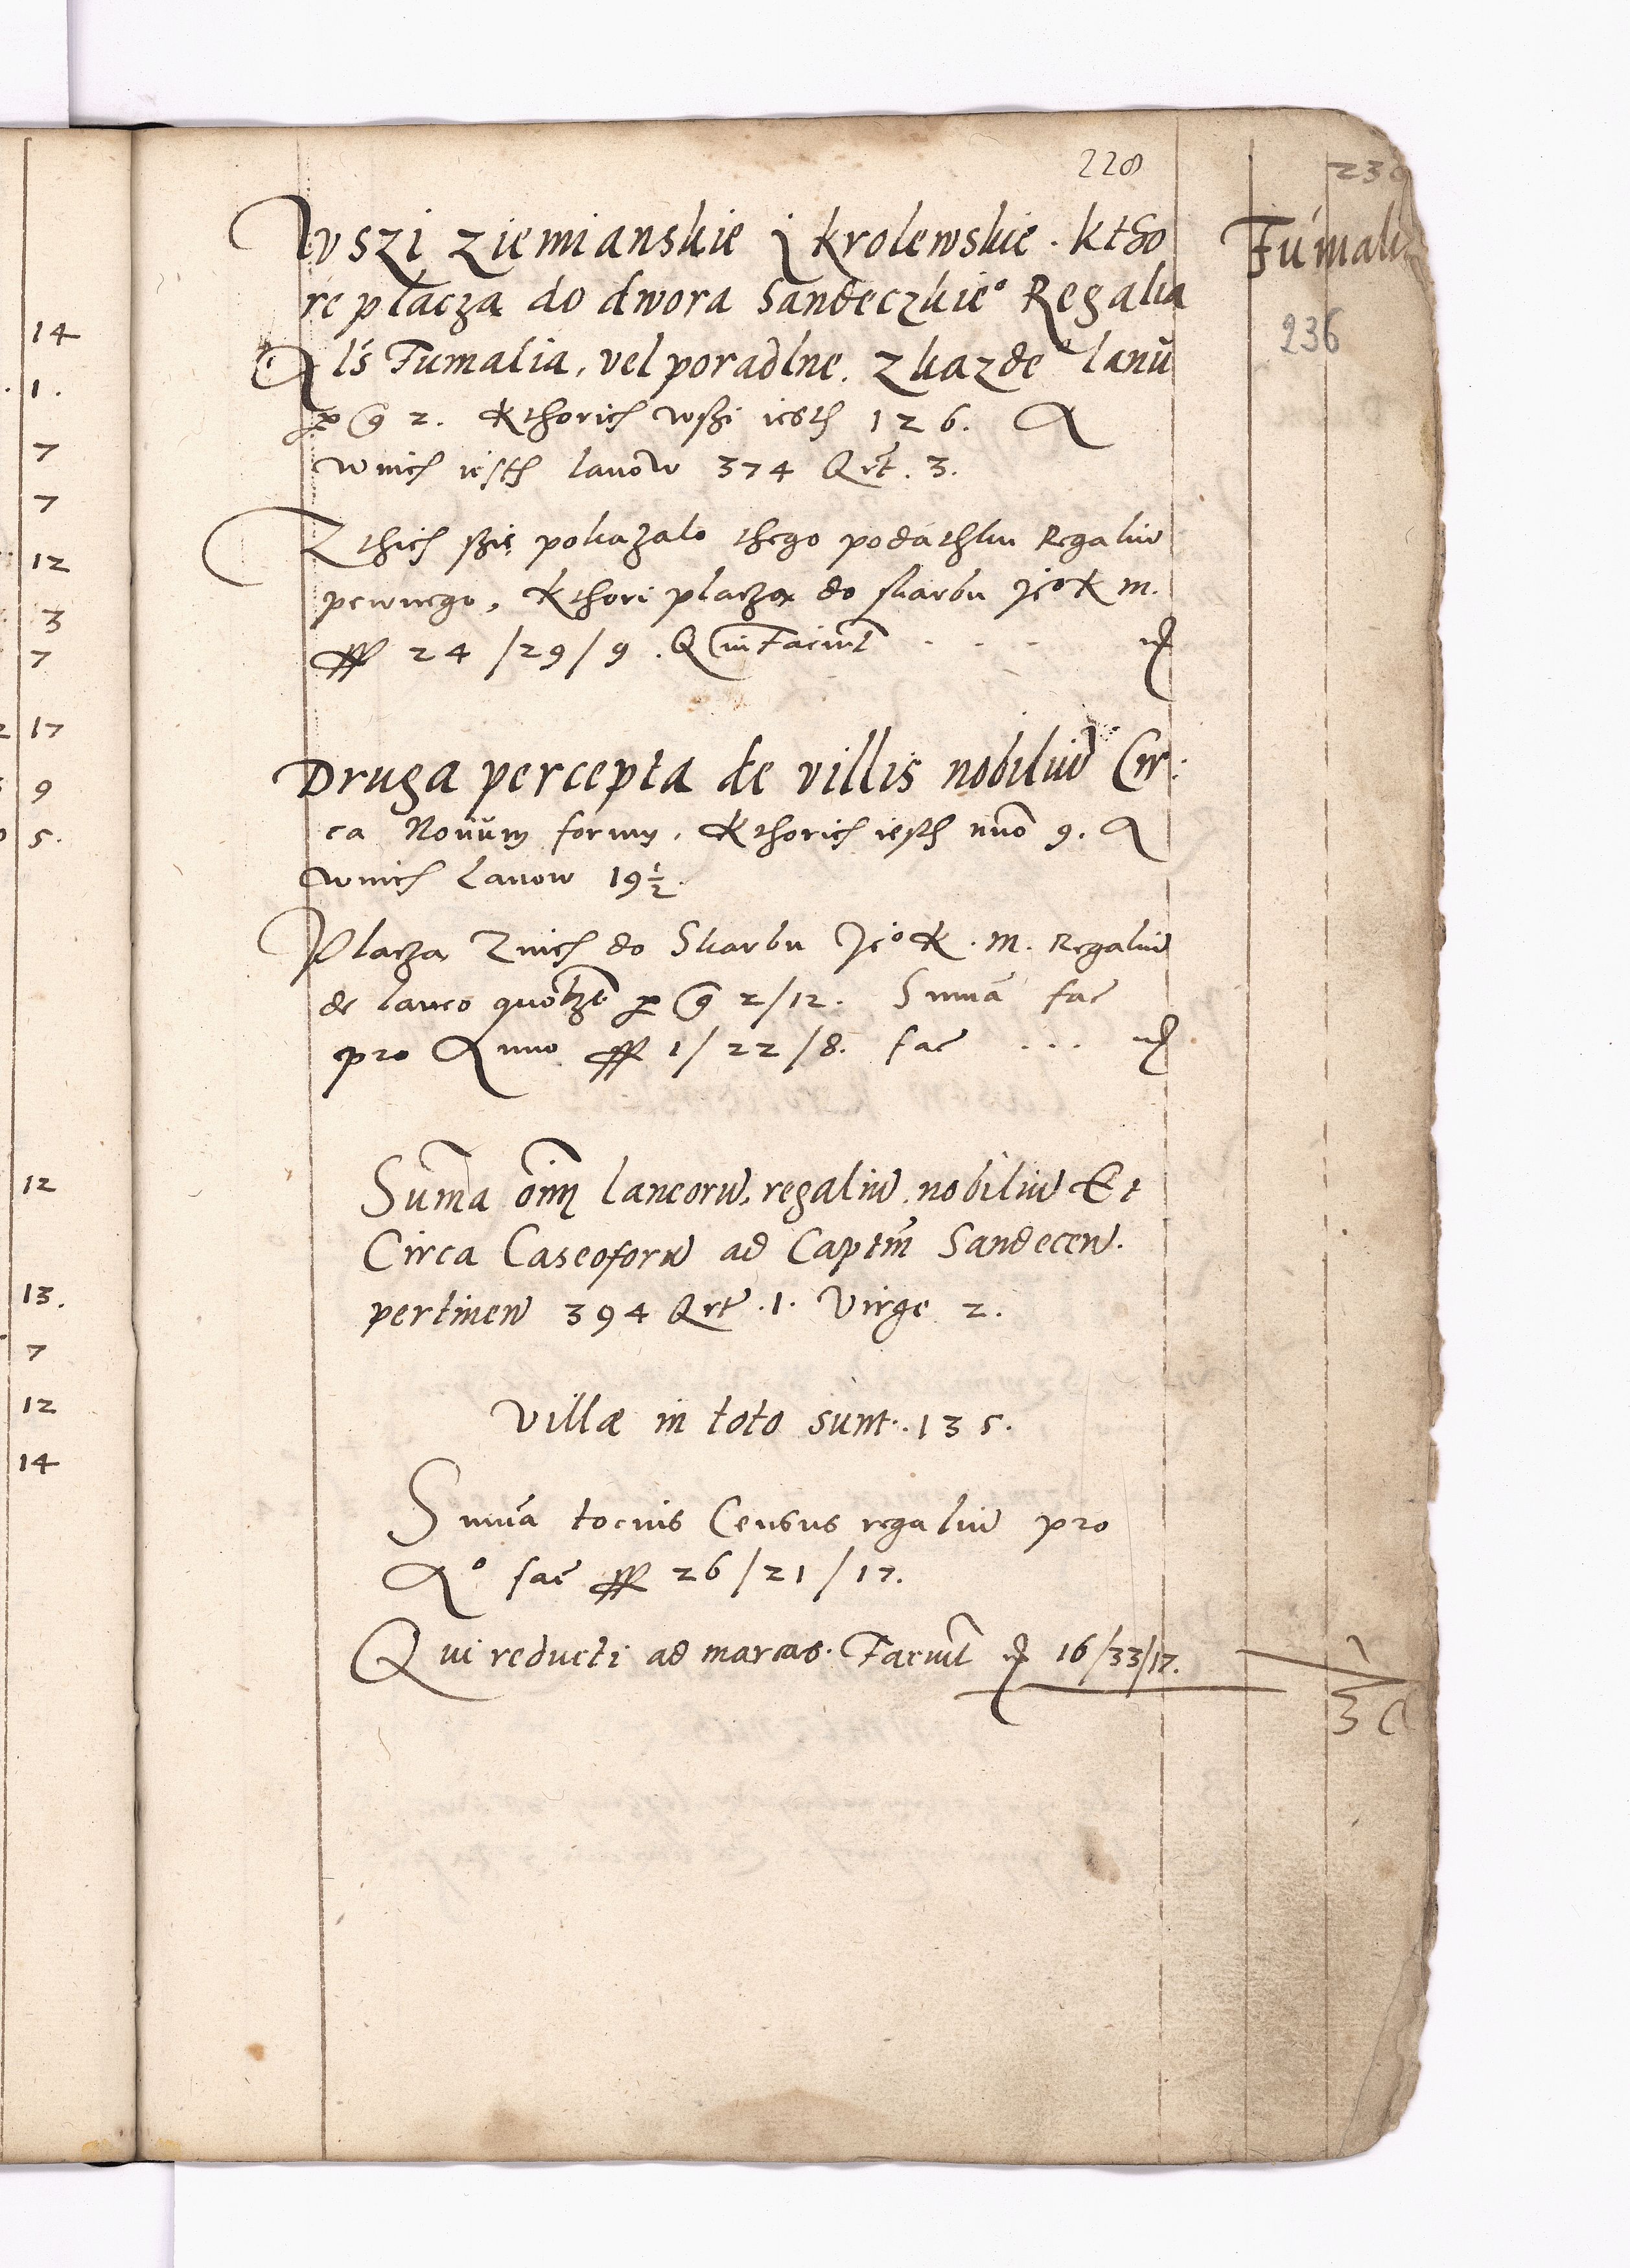 228
230
Fumali
236
Wszi ziemianskie y krolewskie. ktho
re placza do dwora Sandeczkie° Regalia
Als Fumalia, vel poradlne. z kazde° lanu
per gr 2. Kthorich wszi iesth 126. A
w nich iesth lanow 374 Qrt. 3.
Z thich szię pokazalo thego podathku Regaliu
pewnego, Kthori placza do skarbu Je° K M.
24/29/9. Qui Faciunt . . . .
Druga percepta de villis nobiliu Cir:
ca Nouum forum, Kthorich iesth nuo 9. A
w nich Lanow 19½.
Placza z nich do Skarbu Je° K. M. Regaliu
de laneo quolibet per gr 2/12. Suma fac
pro Anno 1/22/8. fac ...
Suma oim laneoru, regaliu, nobiliu Et
Circa Caseoforu ad Captm Sandecen.
pertinen 394 Qrt. 1. Virge 2.
Villæ in toto sunt. 135.
Suma tocius Census regaliu pro
A° fac 26/21/17.
Qui reducti ad marcas. Faciunt 16/33/17.
14
1.
7
7
12
3
7
17
9
5.
12
13.
7
12
14